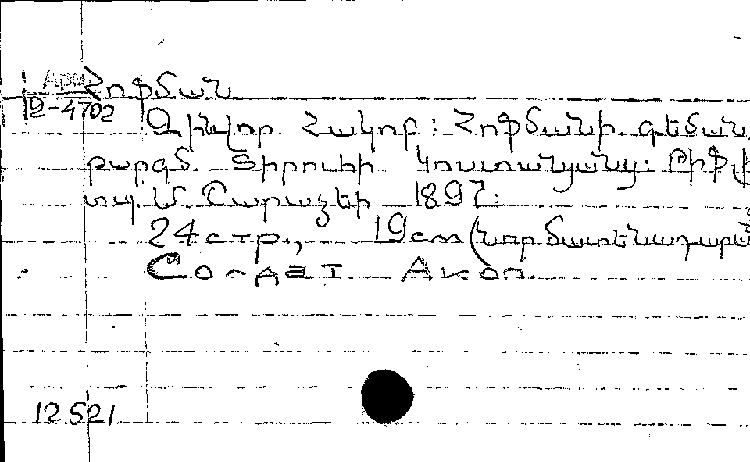 Арм Հոֆման
12-4702
Զինվոր Հակոբ: Հոֆմանի գեման
թարգմ. Տիրուհի Կոստանյանց: Թիֆլ
տպ. Մ. Շարաձեի 1897:
24 стр., 19 см (նոր մատենադարան
Со-дат Акоп.
12521